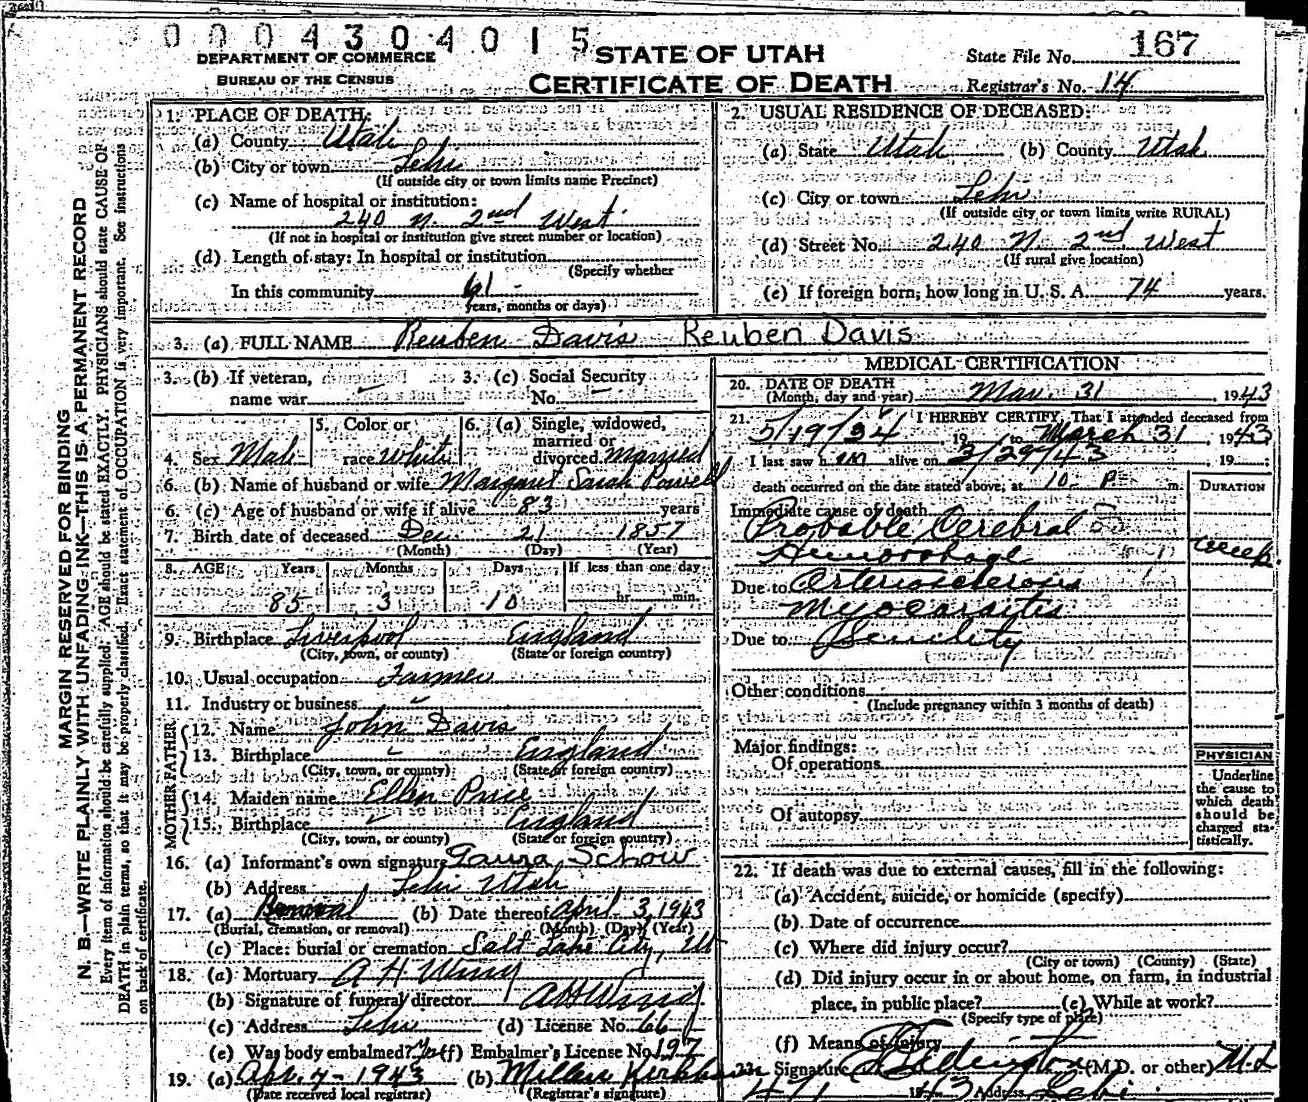 0004304015
DEPARTMENT OF COMMERCE
BUREAU OF THE CENSUS
STATE OF UTAH
CERTIFICATE OF DEATH
State File No. 167
Registrar's No. 14
MARGIN RESERVED FOR BINDING
N. B.—WRITE PLAINLY WITH UNFADING INK—THIS IS A PERMANENT RECORD
Every item of information should be carefully supplied. AGE should be stated EXACTLY. PHYSICIANS should state CAUSE OF
DEATH in plain terms, so that it may be properly classified. Exact statement of OCCUPATION is very important. See instructions
on back of certificate.
1. PLACE OF DEATH:
(a) County Utah
(b) City or town Lehi
(If outside city or town limits name Precinct)
(c) Name of hospital or institution:
240 N. 2nd West
(If not in hospital or institution give street number or location)
(d) Length of stay: In hospital or institution
(Specify whether
In this community 61
years, months or days)
2. USUAL RESIDENCE OF DECEASED:
(a) State Utah (b) County Utah
(c) City or town Lehi
(If outside city or town limits write RURAL)
(d) Street No. 240 N. 2nd West
(If rural give location)
(e) If foreign born, how long in U. S. A. 74 years.
3. (a) FULL NAME Reuben Davis Reuben Davis
3. (b) If veteran, name war
3. (c) Social Security No.
4. Sex Male
5. Color or race White
6. (a) Single, widowed, married or divorced Married
6. (b) Name of husband or wife Margaret Sarah Powell
6. (c) Age of husband or wife if alive 83 years
7. Birth date of deceased Dec 21 1857
(Month) (Day) (Year)
8. AGE Years Months Days If less than one day
85 3 10 hr. min.
9. Birthplace Liverpool England
(City, town, or county) (State or foreign country)
10. Usual occupation Farmer
11. Industry or business
FATHER
12. Name John Davis
13. Birthplace England
(City, town, or county) (State or foreign country)
MOTHER
14. Maiden name Ellen Price
15. Birthplace England
(City, town, or county) (State or foreign country)
16. (a) Informant's own signature Laura Schow
(b) Address Lehi Utah
17. (a) Removal (b) Date thereof April 3, 1943
(Burial, cremation, or removal) (Month) (Day) (Year)
(c) Place: burial or cremation Salt Lake City, Ut
18. (a) Mortuary A H Wing
(b) Signature of funeral director A H Wing
(c) Address Lehi (d) License No. 66
(e) Was body embalmed? Yes (f) Embalmer's License No. 197
19. (a) Apr. 7 - 1943 (b)
(Date received local registrar) (Registrar's signature)
MEDICAL CERTIFICATION
20. DATE OF DEATH
(Month, day and year) Mar. 31, 1943
21. I HEREBY CERTIFY, That I attended deceased from
5/19/34, 19 to March 31, 1943
I last saw him alive on 3/29/43, 19
death occurred on the date stated above, at 10 P. m.
DURATION
Immediate cause of death
Probable Cerebral
Hemorrhage week
Due to Arteriosclerosis
Myocarditis
Due to Senility
Other conditions
(Include pregnancy within 3 months of death)
Major findings:
Of operations
Of autopsy
PHYSICIAN
Underline
the cause to
which death
should be
charged sta-
tistically.
22. If death was due to external causes, fill in the following:
(a) Accident, suicide, or homicide (specify)
(b) Date of occurrence
(c) Where did injury occur?
(City or town) (County) (State)
(d) Did injury occur in or about home, on farm, in industrial
place, in public place? (e) While at work?
(Specify type of place)
(f) Means of Injury
23. Signature (M.D. or other) M.D.
Address Lehi